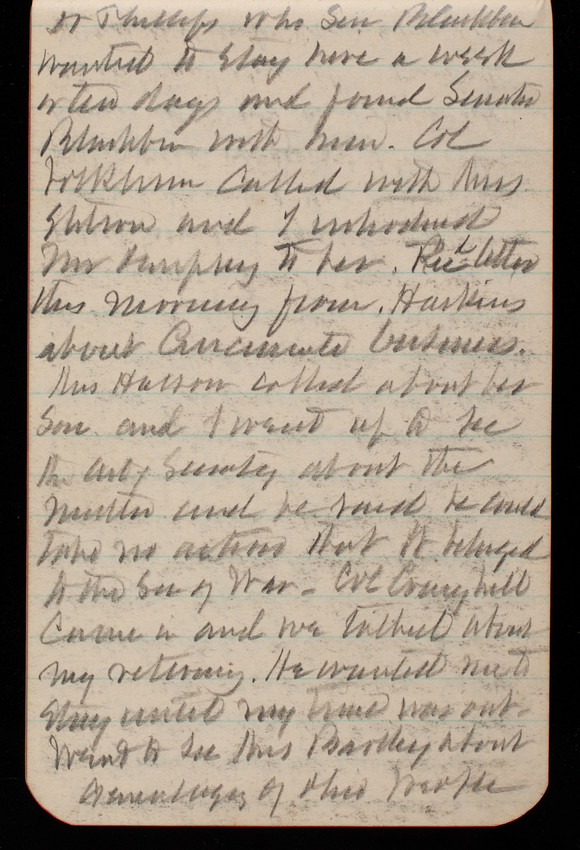 Phillips who Sen. Blackburn
wanted to stay here a week
or ten days and found Senator
Blackburn with him. Col
called with Mrs
and I introduced
Mr Humphrey to her. Recd letter
this morning from Harkins
about Cincinnati business.
Mrs called about her
Son and I went up to see
the Actg Secretary about the
matter and he said he could
take no action that it belonged
to the Sec of War - Col Craighill
Came in and we talked about
my retiring. He wanted me to
Stay until my time was out.
Went to see Mrs about
Genealogy of Ohio People